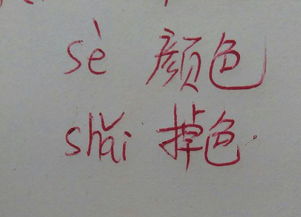 sè 颜色
shǎi 掉色.